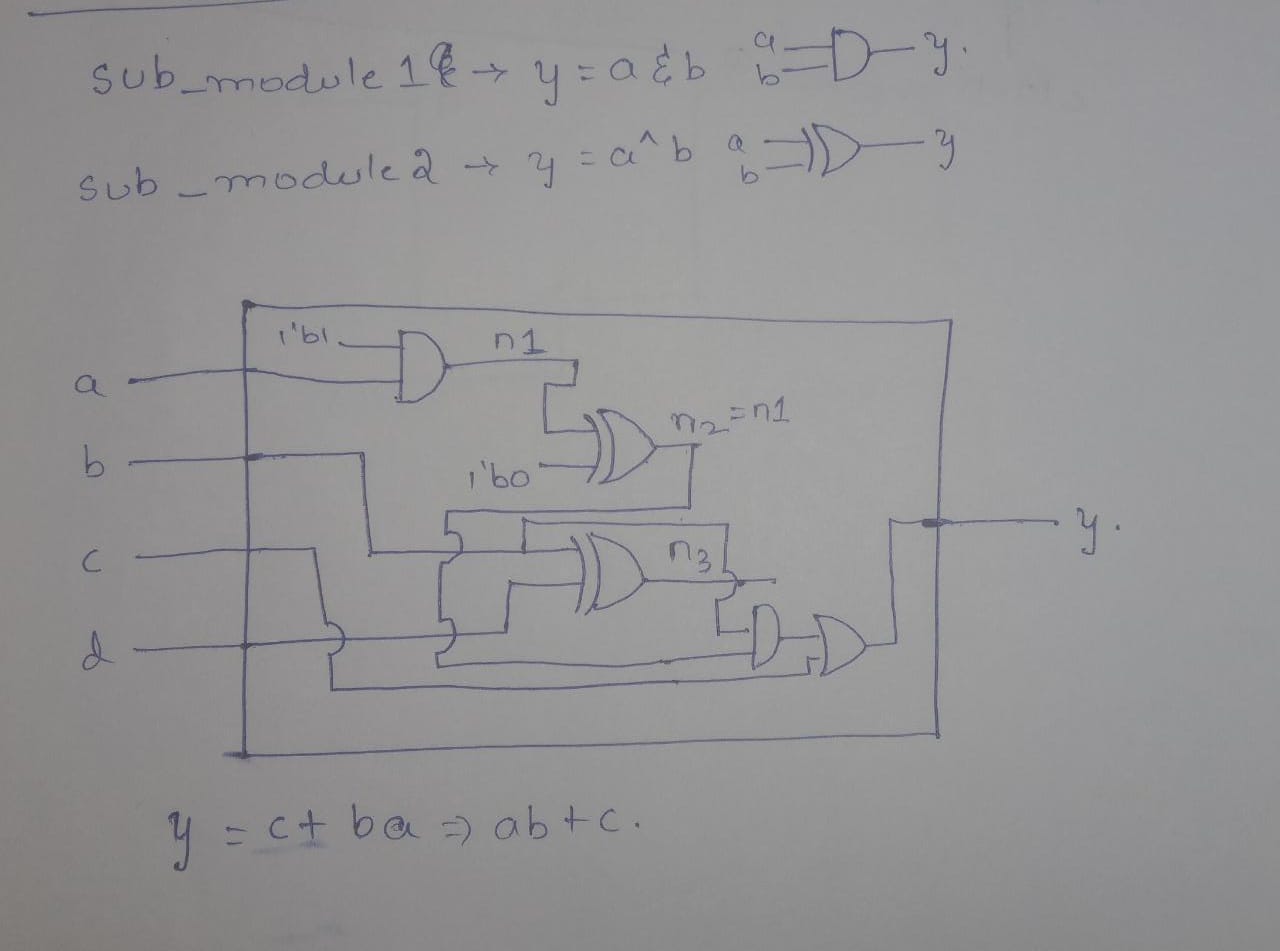 sub_module 1 → y = a & b a b y.
sub_module 2 → y = a^b a b y
1'b1 n1
a
n2 = n1
b
1'b0
y.
c
n3
d
y = c + ba ⇒ ab + c.